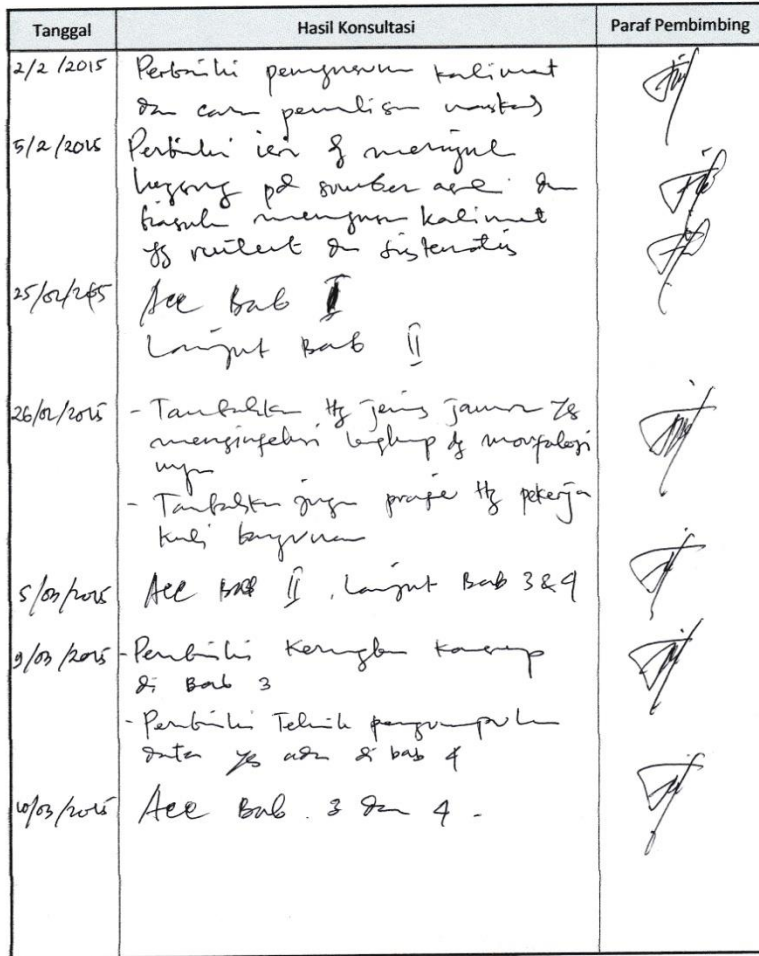 Tanggal
Hasil Konsultasi
Paraf Pembimbing
2/2/2015
Perbaiki penyusunan kalimat
dan cara penulisan naskah
5/2/2015
Perbaiki isi dg
pd sumber dan
kalimat
yg dan sistematis
25/02/2015
Acc Bab I
Lanjut Bab II
26/02/2015
- Tambahkan ttg jenis jamur yg
menginfeksi lengkap dg morfologi
nya
- Tambahkan juga ttg pekerja
kuli bangunan
5/03/2015
Acc Bab II, Lanjut Bab 3 & 4
9/03/2015
- Perbaiki Kerangka Konsep
di Bab 3
- Perbaiki Teknik pengumpulan
data yg ada di bab 4
10/03/2015
Acc Bab. 3 dan 4.